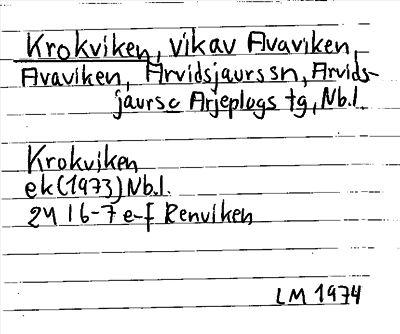 Krokviken, vik av Avaviken,
Avaviken, Arvidsjaurs sn, Arvids-
jaurs o Arjeplogs tg, Nb.l.
Krokviken
ek (1973) Nb.l.
24 I 6-7 e-f Renviken
LM 1974